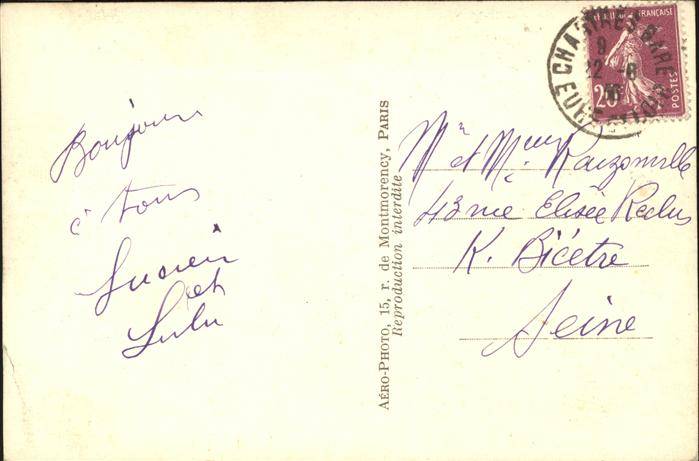 Bonjour
à tous
Lucien
et
Lulu
AÉRO-PHOTO, 15, r. de Montmorency, PARIS
Reproduction interdite
FRANÇAISE
POSTES
20
CHARTRES GARE
9
22 -8
EURE ET LOIR
Mr et Mme
43 rue Elisée Reclus
K. Bicêtre
Seine